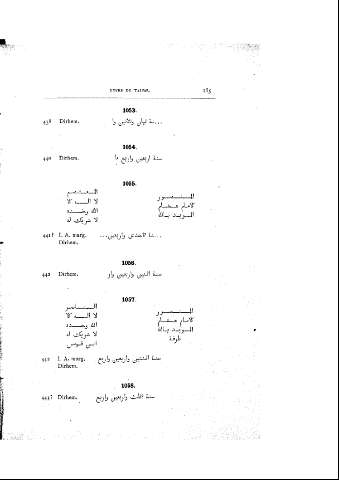 TYPES DE TALBS. 185
1053.
438 Dirhem. ...نة ثمان وثلثين وا
1054.
440 Dirhem. سنة اربعين واربع ما
1055.
المعتصم
لا اله الا
الله وحده
لا شريك له
المنصور
الامام هشام
المويد بالله
441? I. A. marg. ...نة احدى واربعين...
Dirhem.
1056.
442 Dirhem. سنة اثنين واربعين وار
1057.
لا اله الا
الله وحده
لا شريك له
المنصور
الامام هشام
المويد بالله
442 I. A. marg. سنة اثنتين واربعين واربع
Dirhem.
1058.
443? Dirhem. سنة ثلث واربعين واربع